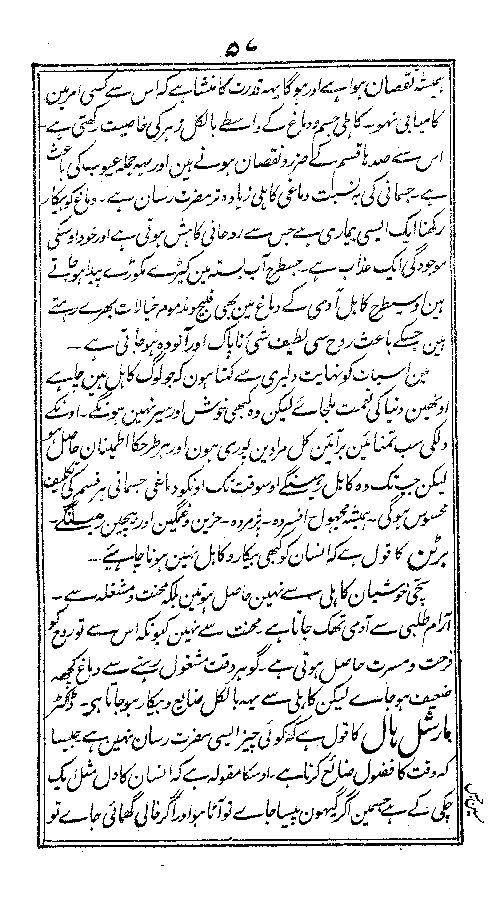 ۵۶
ہمیشہ نقصان ہوا ہے اور ہوگا یہہ قدرت کا منشا ہے کہ اس سے کسی امر مین
کامیابی نہو۔ کاہلی جسم و دماغ کے واسطے بالکل زہر کی خاصیت رکھتی ہے
اس سے صدہا قسم کے ضرر و نقصان ہوتے ہین اور یہہ جملہ عیوب کی باعث
ہے۔ جسمانی کی بہ نسبت دماغی کاہلی زیادہ تر مضرت رسان ہے۔ دماغ کو بیکار
رکھنا ایک ایسی بیماری ہے جس سے روحانی کاہش ہوتی ہے اور خود اوسکی
موجودگی ایک عذاب ہے۔ جسطرح آب بستہ مین کیڑے مکوڑے پیدا ہو جاتے
ہین اوسیطرح کاہل آدمی کے دماغ مین بھی قبیح و مذموم خیالات بھرے رہتے
ہین جسکے باعث روح سی لطیف شئ ناپاک اور آلودہ ہو جاتی ہے۔
مین اس بات کو نہایت دلیری سے کہتا ہون کہ جو لوگ کاہل ہین چاہے
اونھین دنیا کی نعمت ملجائے لیکن وہ کبھی خوش اور سیر نہین ہونگے۔ اونکے
دلکی سب تمنائین بر آئین کل مرادین پوری ہون اور ہر طرحکا اطمینان حاصل ہو
لیکن جب تک وہ کاہل رہینگے اوسوقت تک اونکو دماغی جسمانی ہر قسم کی تکلیف
محسوس ہوگی۔ ہمیشہ مجہول افسردہ۔ پژمردہ۔ حزین و غمگین اور بیچین رہینگے۔
برٹن کا قول ہے کہ انسان کو کبھی بیکار و کاہل نہین ہونا چاہیئے۔
سچی خوشیان کاہلی سے نہین حاصل ہوتین بلکہ محنت و مشغلہ سے۔
آرام طلبی سے آدمی تھک جاتا ہے۔ محنت سے نہین کیونکہ اس سے تو روح کو
فرحت و مسرت حاصل ہوتی ہے۔ گو ہر وقت مشغول رہنے سے دماغ کچھہ
ضعیف ہو جاے لیکن کاہلی سے یہہ بالکل ضائع و بیکار ہو جاتا ہی۔ ڈاکٹر
مارشل ہال کا قول ہے کہ کوئی چیز ایسی مضرت رسان نہین ہے جیسا
کہ وقت کا فضول ضائع کرنا ہے۔ اوسکا مقولہ ہے کہ انسان کا دل مثل ایک
چکی کے ہے جسمین اگر گیہون پیسا جاے تو آٹا ہو اور اگر خالی گھمائی جاے تو